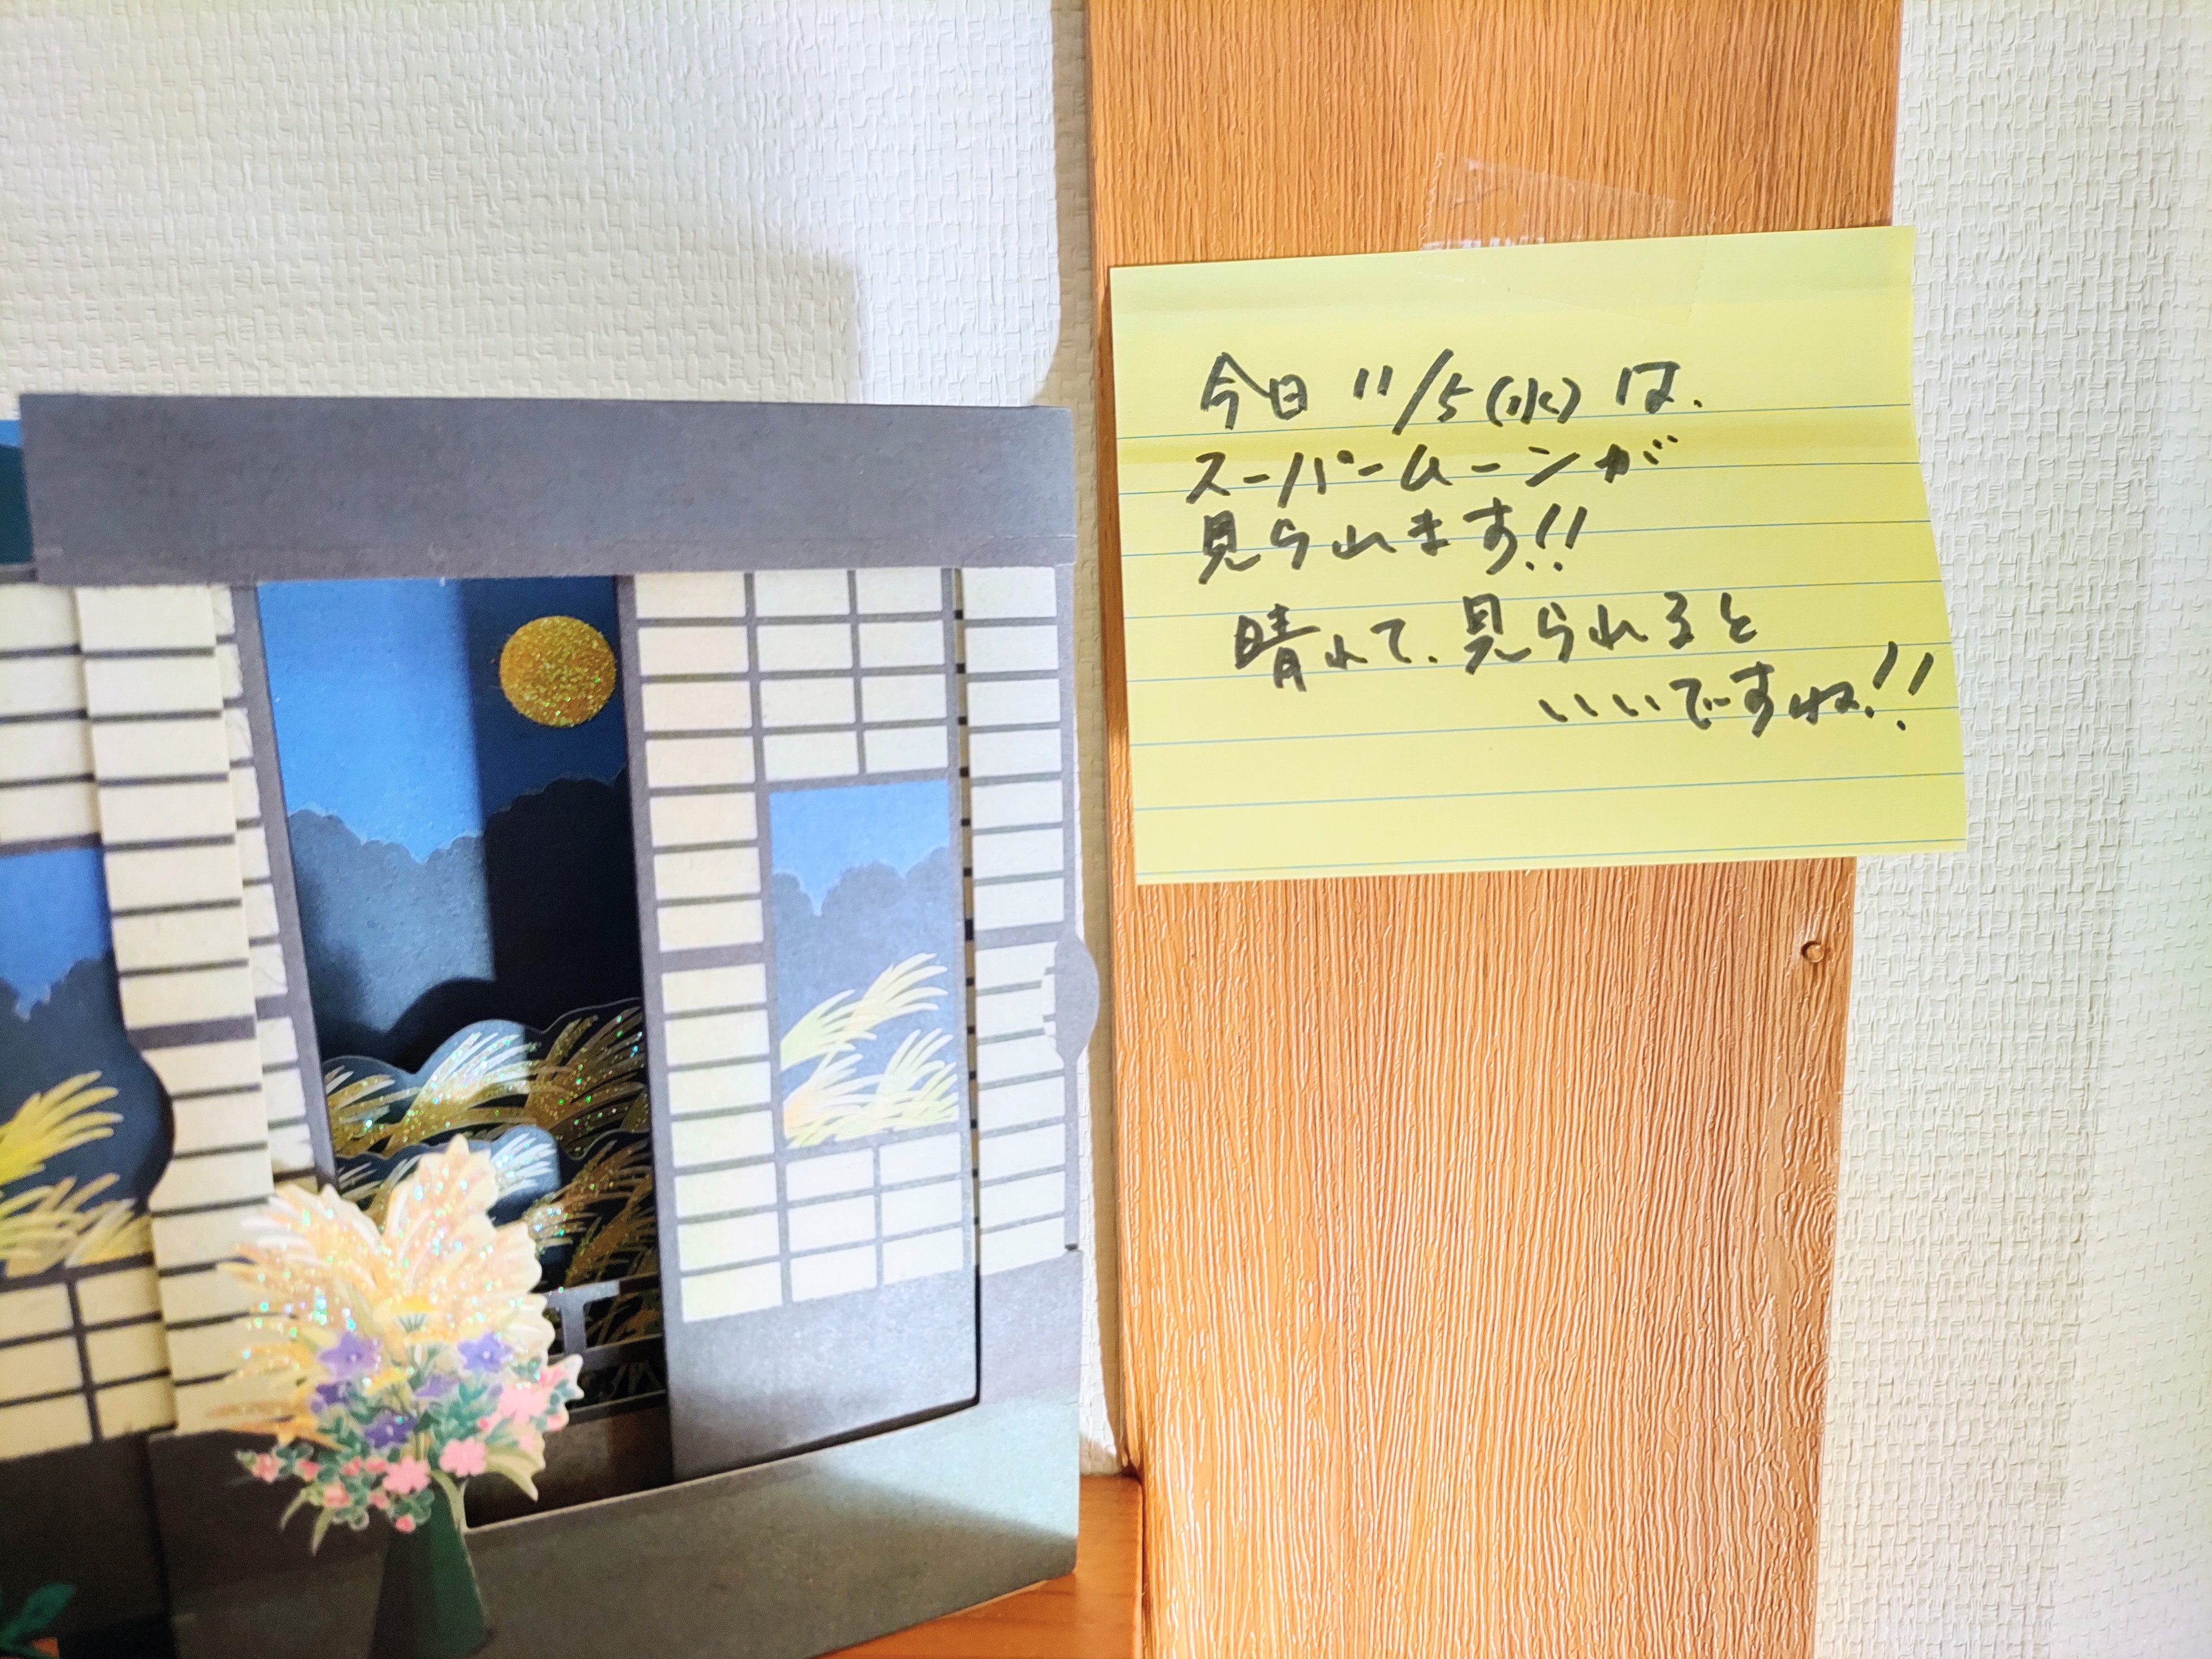 今日 11/5(水)は、
スーパームーンが
見られます!!
晴れて、見られると
いいですね!!